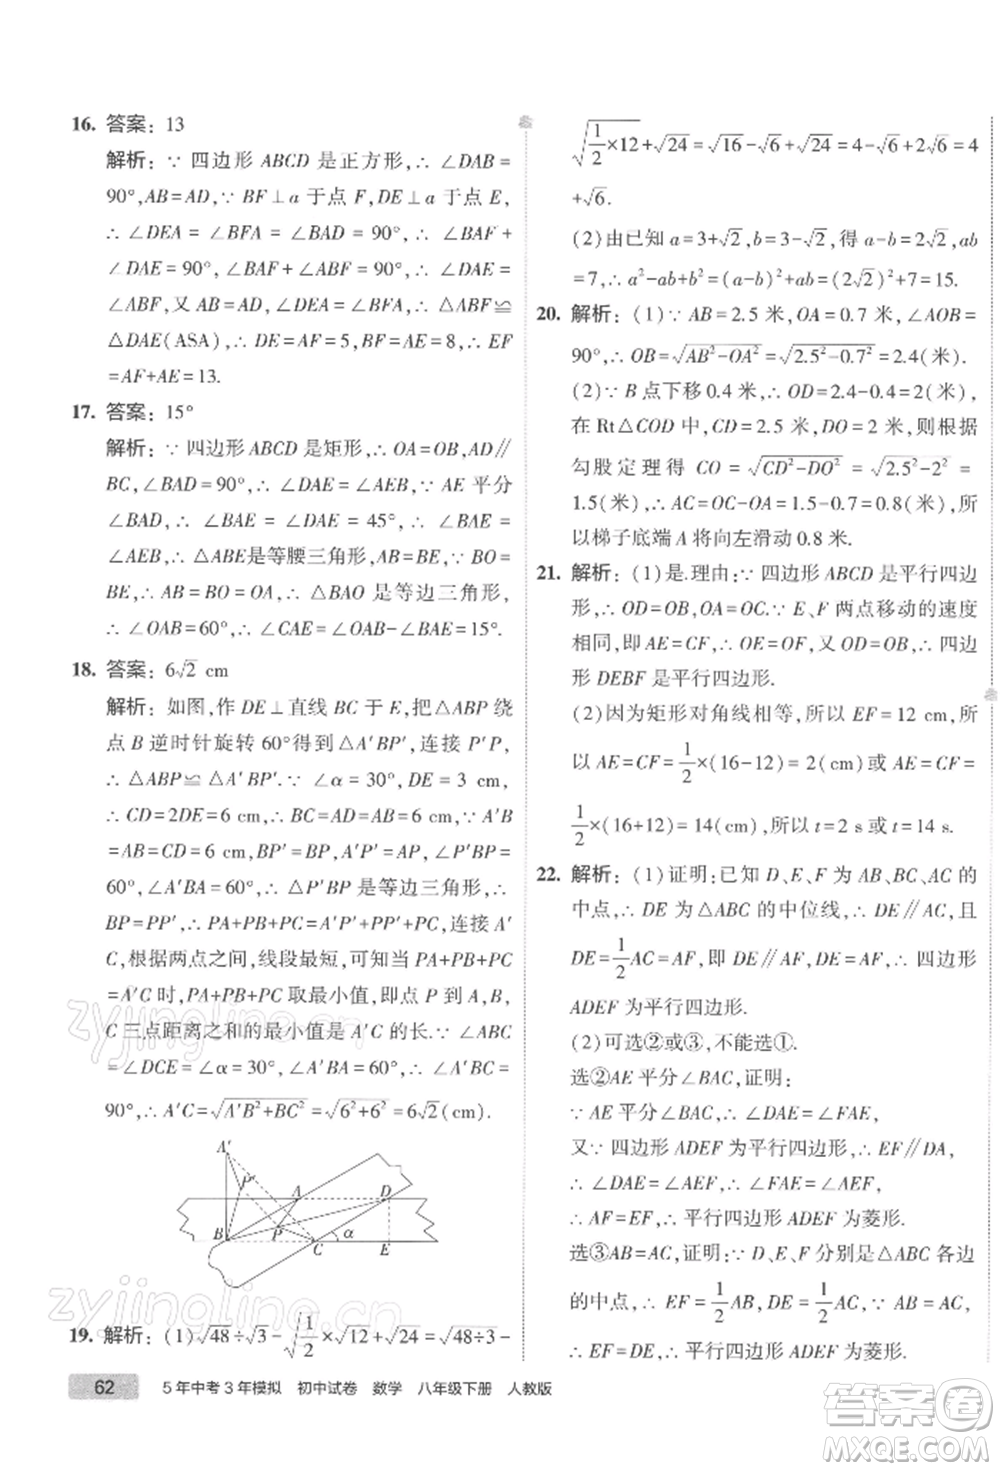 16. 答案:13
解析:∵ 四边形 ABCD 是正方形,∴ ∠DAB=
90°,AB=AD,∵ BF⊥a 于点 F,DE⊥a 于点 E,
∴ ∠DEA=∠BFA=∠BAD=90°,∴ ∠BAF+
∠DAE=90°,∠BAF+∠ABF=90°,∴ ∠DAE=
∠ABF,又 AB=AD,∠DEA=∠BFA,∴ △ABF≌
△DAE(ASA),∴ DE=AF=5,BF=AE=8,∴ EF
=AF+AE=13.
17. 答案:15°
解析:∵ 四边形 ABCD 是矩形,∴ OA=OB,AD∥
BC,∠BAD=90°,∴ ∠DAE=∠AEB,∵ AE 平分
∠BAD,∴ ∠BAE=∠DAE=45°,∴ ∠BAE=
∠AEB,∴ △ABE是等腰三角形,AB=BE=BO=
BE,∴ AB=BO=OA,∴ △BAO是等边三角形,
∴ ∠OAB=60°,∴ ∠CAE=∠OAB-∠BAE=15°.
18. 答案:6√2 cm
解析:如图,作 DE⊥直线 BC 于 E,把△ABP 绕
点 B 逆时针旋转 60°得到△A′BP′,连接 P′P,
∴ △ABP≌△A′BP′.∵ ∠α=30°,DE=3 cm,
∴ CD=2DE=6 cm,∴ BC=AD=6 cm,∴ A′B
=AB=CD=6 cm,BP′=BP,∵ ∠P′BP=
60°,∠A′BA=60°,∴ △P′BP是等边三角形,∴
BP=PP′,∴ PA+PB+PC=A′P′+PP′+PC≥A′
C,根据两点之间,线段最短,可知当 PA+PB+PC
=A′C时,PA+PB+PC取最小值,即点 P 到 A、B、
C 三点距离之和的最小值是 A′C 的长.∵ ∠ABC
=∠DCE=∠α=30°,∠A′BA=60°,∴ ∠A′BC=
90°,∴ A′C=√(A′B²+BC²)=√(6²+6²)=6√2(cm).
A′ P′ A D B P C α E
19. 解析:(1)√48÷√3-√(1/2)×√12+√24=√(48÷3)-
√(1/2×12)+√24=√16-√6+√24=4-√6+2√6=4
+√6.
(2)由已知 a=3+√2,b=3-√2,得 a-b=2√2,ab
=7,∴ a²-ab+b²=(a-b)²+ab=(2√2)²+7=15.
20. 解析:(1)∵ AB=2.5 米,OA=0.7 米,∠AOB=
90°,∴ OB=√(AB²-OA²)=√(2.5²-0.7²)=2.4(米).
(2)∵ B 点下移 0.4 米,∴ OD=2.4-0.4=2(米),
在 Rt△COD 中,CD=2.5 米,DO=2 米,则根据
勾股定理得 CO=√(CD²-DO²)=√(2.5²-2²)=
1.5(米),∴ AC=OC-OA=1.5-0.7=0.8(米),所
以梯子底端 A 将向左滑动 0.8 米.
21. 解析:(1)是.理由:∵ 四边形 ABCD 是平行四边
形,∴ OD=OB,OA=OC.∵ E、F 两点移动的速度
相同,即 AE=CF,∴ OE=OF,又 OD=OB,∴ 四边
形 DEBF 是平行四边形.
(2)因为矩形对角线相等,所以 EF=12 cm,所
以 AE=CF=1/2×(16-12)=2(cm)或 AE=CF=
1/2×(16+12)=14(cm),所以 t=2 s 或 t=14 s.
22. 解析:(1)证明:已知 D、E、F 为 AB、BC、AC 的
中点,∴ DE 为△ABC 的中位线,∴ DE∥AC,且
DE=1/2AC=AF,即 DE∥AF,DE=AF,∴ 四边形
ADEF 为平行四边形.
(2)可选②或③,不能选①.
选②AE 平分∠BAC,证明:
∵ AE 平分∠BAC,∴ ∠DAE=∠FAE,
又∵ 四边形 ADEF 为平行四边形,∴ EF∥DA,
∴ ∠DAE=∠AEF,∴ ∠FAE=∠AEF,
∴ AF=EF,∴ 平行四边形 ADEF 为菱形.
选③AB=AC,证明:∵ D、E、F 分别是△ABC 各边
的中点,∴ EF=1/2AB,DE=1/2AC,∵ AB=AC,
∴ EF=DE,∴ 平行四边形 ADEF 为菱形.
62 5年中考3年模拟 初中试卷 数学 八年级下册 人教版
zyjingling.cn
zyjingling.cn
答案圈
MXQE.COM